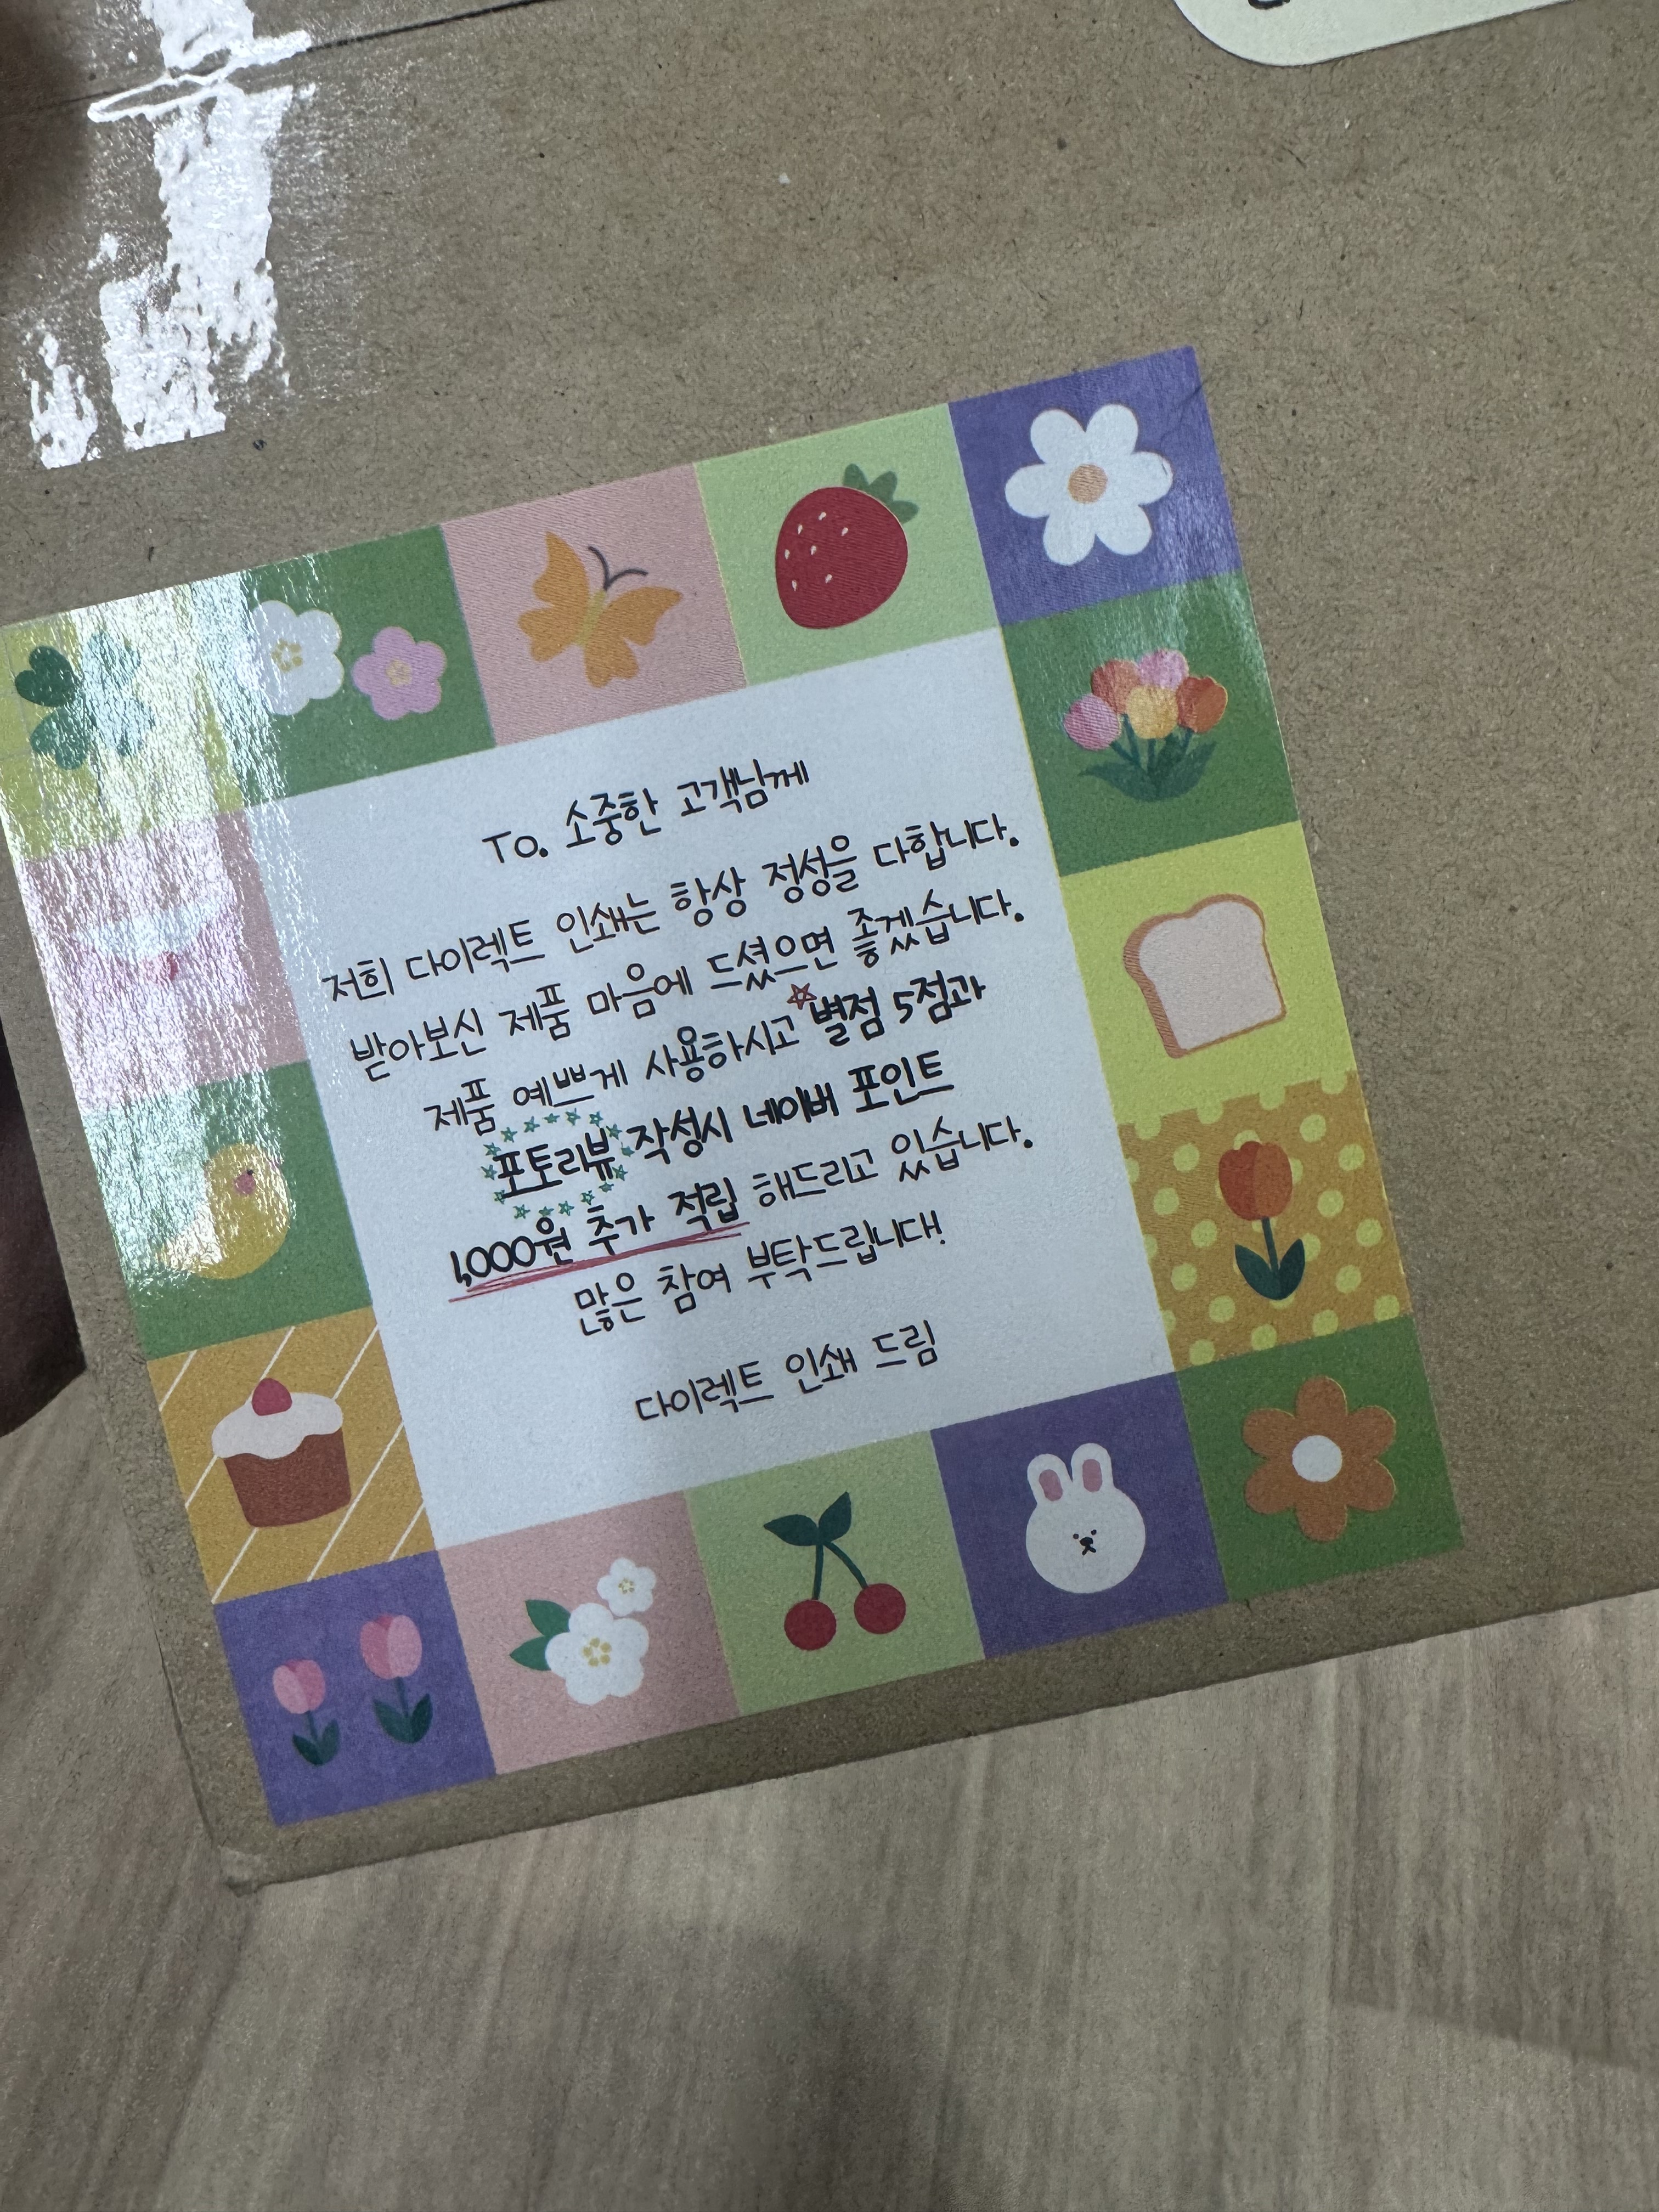 To. 소중한 고객님께
저희 다이렉트 인쇄는 항상 정성을 다합니다.
받아보신 제품 마음에 드셨으면 좋겠습니다.
제품 예쁘게 사용하시고 별점 5점과
포토리뷰 작성시 네이버 포인트
1,000원 추가 적립 해드리고 있습니다.
많은 참여 부탁드립니다!
다이렉트 인쇄 드림